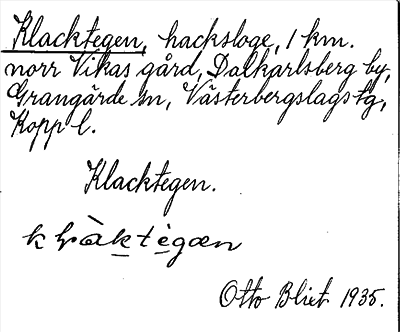 Klacktegen, hacksloge, 1 km.
norr Vikas gård, Dalkarlsberg by,
Grangärde sn, Västerbergslags tg,
Kopp l.
Klacktegen.
Otto Blixt 1935.